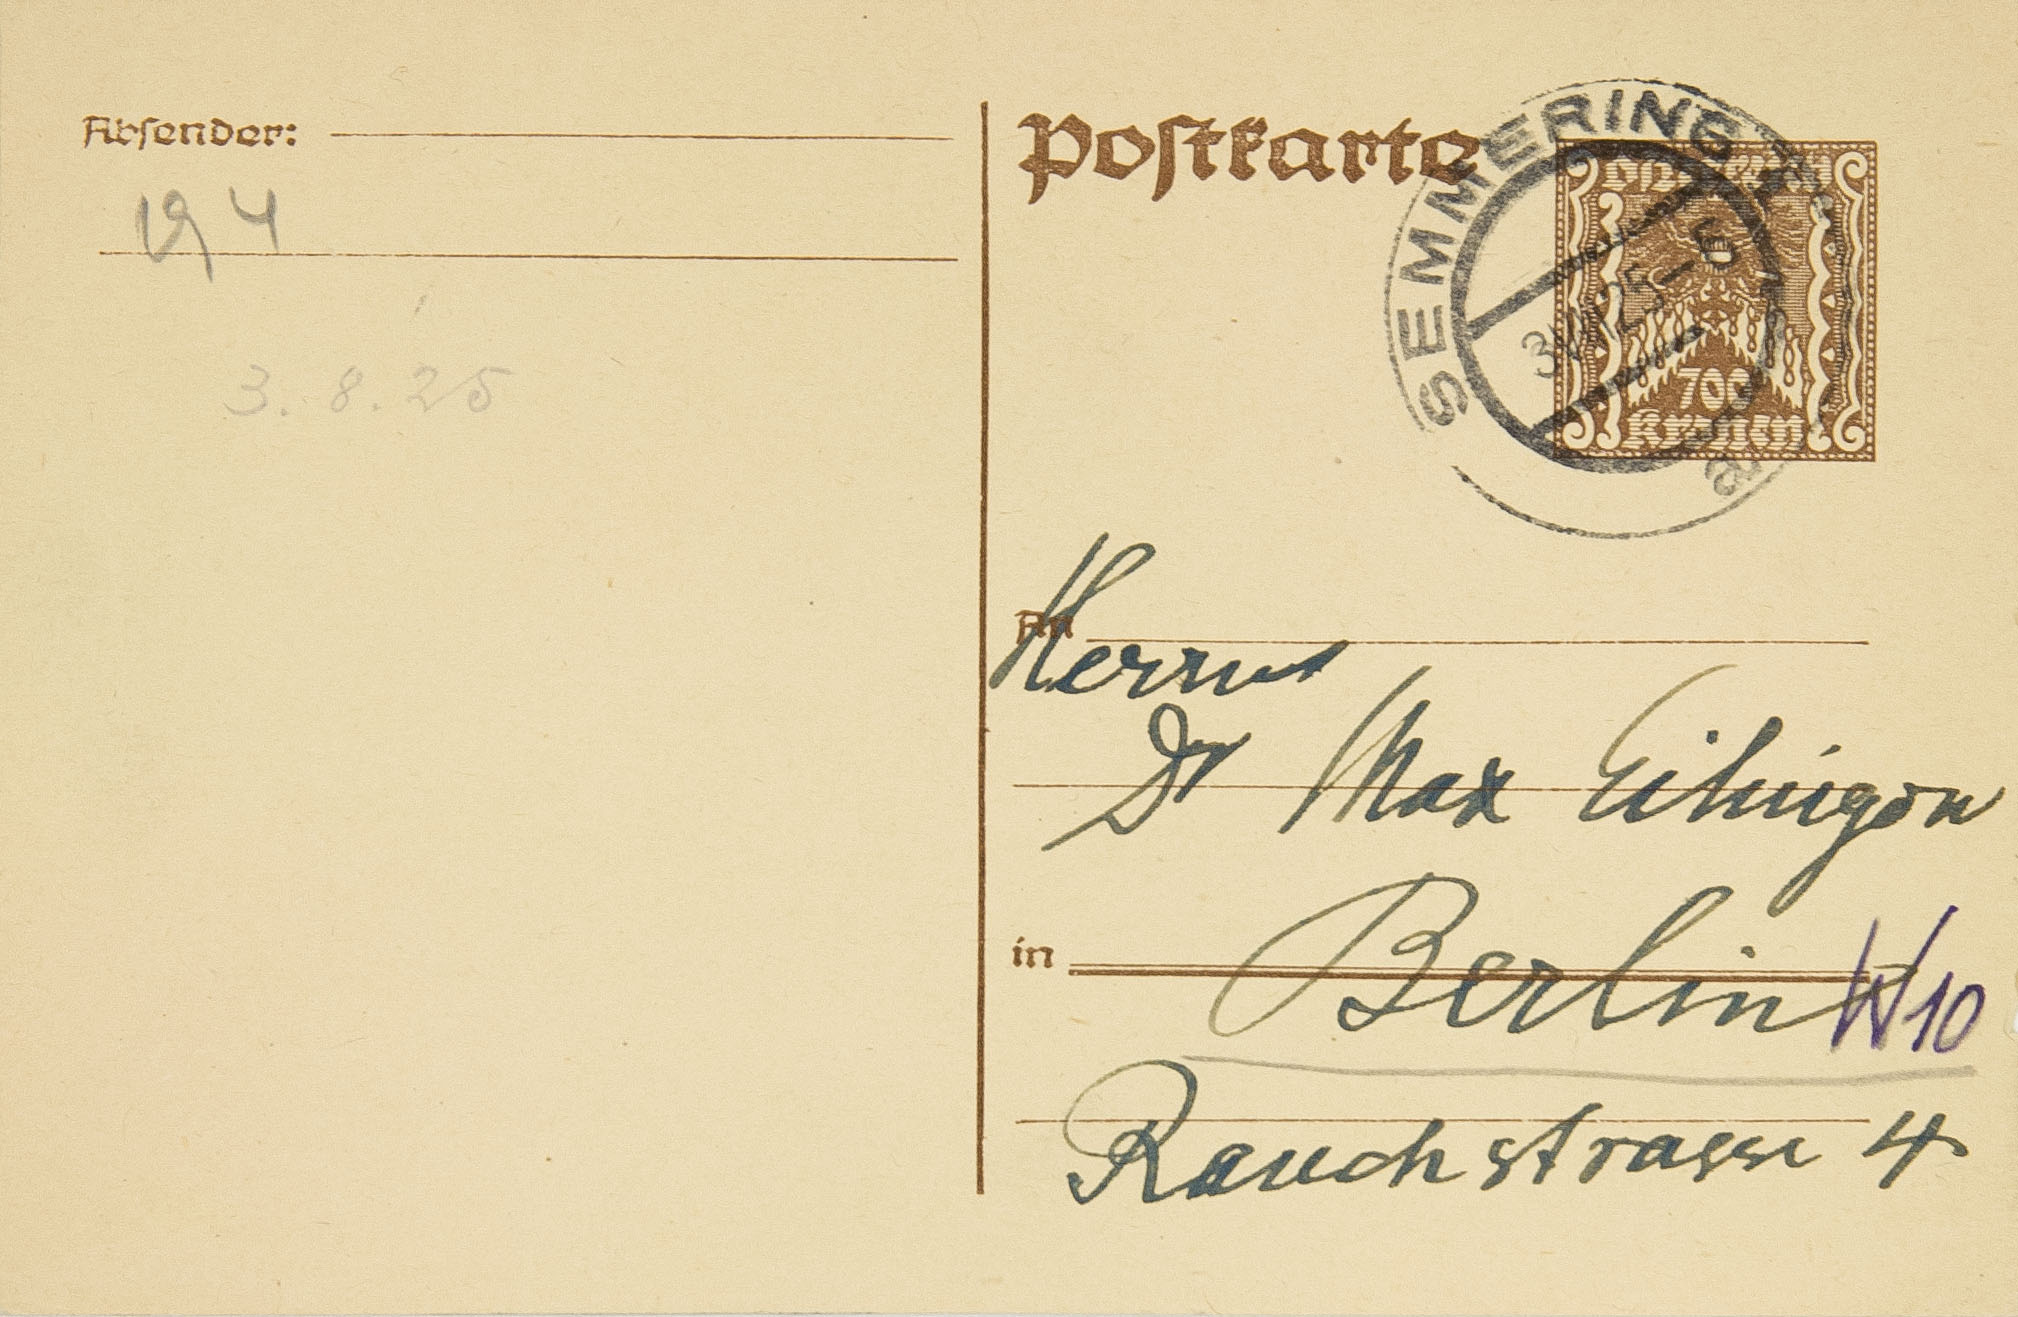 Absender:
194
3.8.25
Postkarte
SEMMERING
3 VIII 25 - 5
a
700
Kronen
An
Herrn
Dr Max Eitingon
in Berlin W10
Rauchstrasse 4